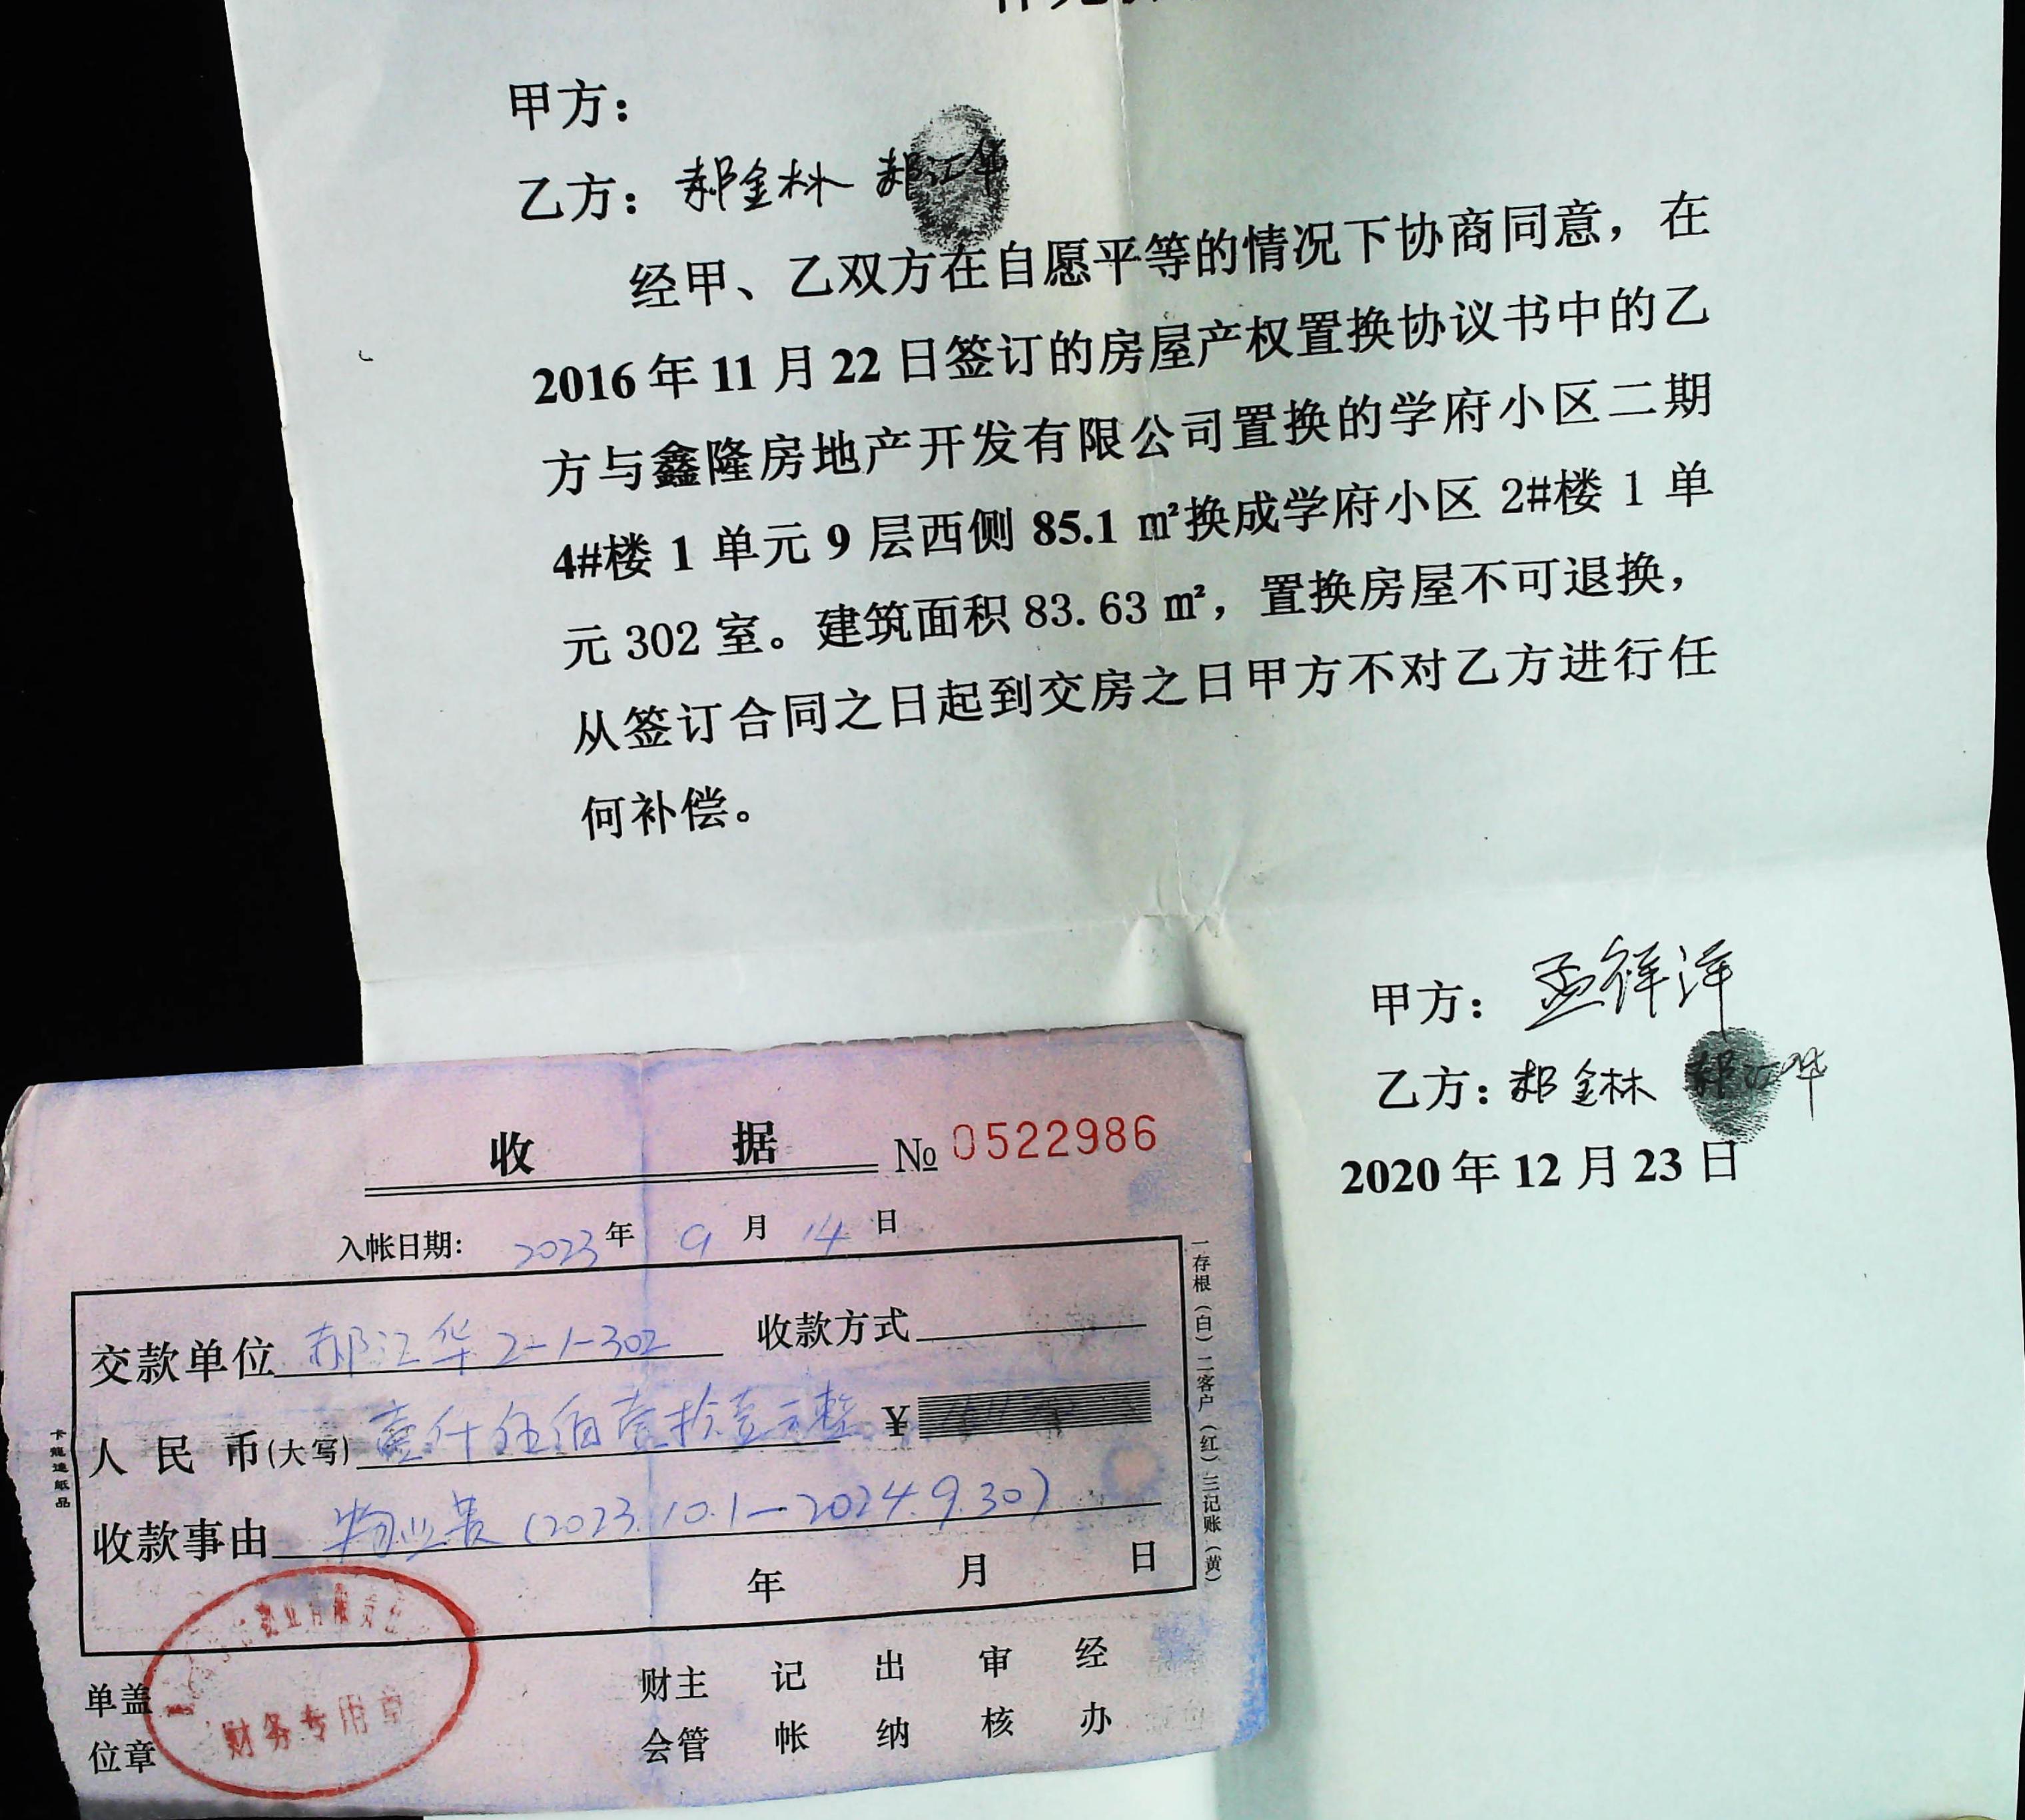 甲方：
乙方：郝金林 郝江华
经甲、乙双方在自愿平等的情况下协商同意，在
2016年11月22日签订的房屋产权置换协议书中的乙
方与鑫隆房地产开发有限公司置换的学府小区二期
4#楼1单元9层西侧85.1㎡换成学府小区2#楼1单
元302室。建筑面积83.63㎡，置换房屋不可退换，
从签订合同之日起到交房之日甲方不对乙方进行任
何补偿。
甲方：孟祥洋
乙方：郝金林 郝江华
2020年12月23日
收 据 № 0522986
入帐日期： 2023年 9月 14日
交款单位 郝江华 2-1-302 收款方式
人民币(大写) 壹仟伍佰壹拾壹元整 ¥
收款事由 物业费(2023.10.1—2024.9.30)
年 月 日
一存根（白）二客户（红）三记账（黄）
单盖 财主 记 出 审 经
位章 会管 帐 纳 核 办
财务专用章